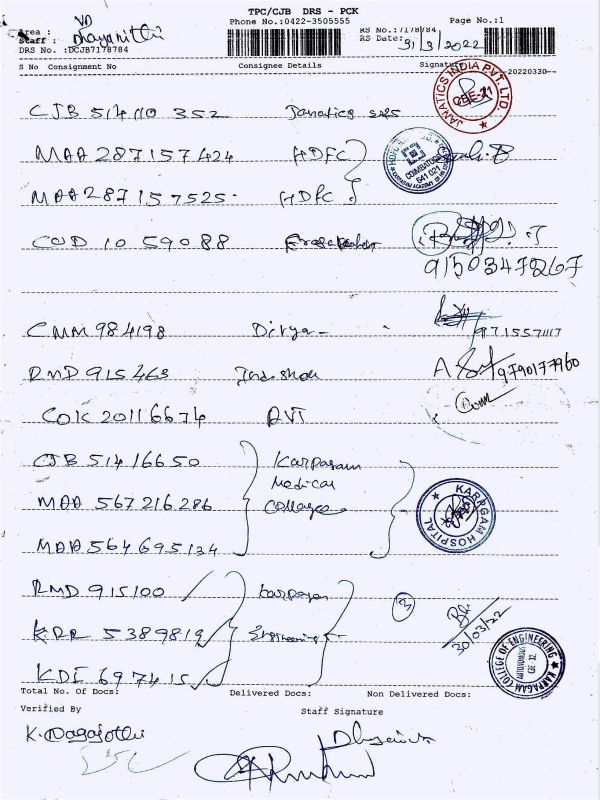 TPC/CJB DRS - PCK
Phone No.:0422-3505555 Page No.:1
Area : VD
Staff : Dhayanithi RS No :7178784
DRS No. :DCJB7178784 RS Date: 31/3/2022
S No Consignment No Consignee Details Signature 20220330
JANATICS INDIA PVT. LTD. CBE-21
CJB 514110 352 Janatics
MAA 287157424 HDFC
COIMBATORE 641 021
MAA 287157525 HDFC
COD 1059088
9150347267
CMM 984198 Divya
RMD 915463 9790177960
COK 20116674 AVT
CJB 51416650 Karpagam
MAA 567216286 Medical College
KARPAGAM HOSPITAL
MAA 564695134
RMD 915100 Karpagam 3
KRR 5389819 Engineering 30/03/22
KDI 697415
KARPAGAM COLLEGE OF ENGINEERING AUTONOMOUS CBE 32
Total No. Of Docs: Delivered Docs: Non Delivered Docs:
Verified By Staff Signature
K. Nagajothi